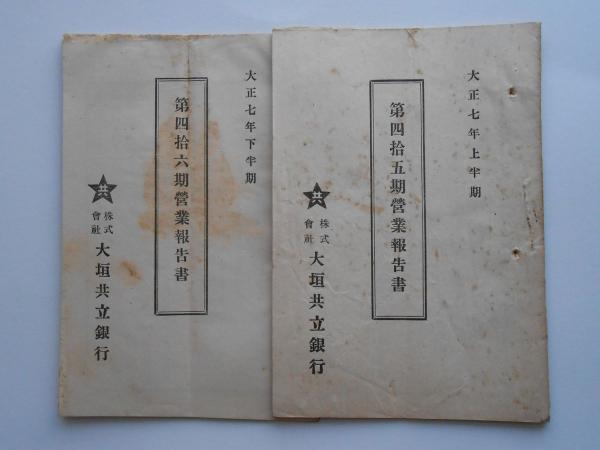 大正七年上半期
第四拾五期營業報告書
共
株式會社
大垣共立銀行
大正七年下半期
第四拾六期營業報告書
共
株式會社
大垣共立銀行